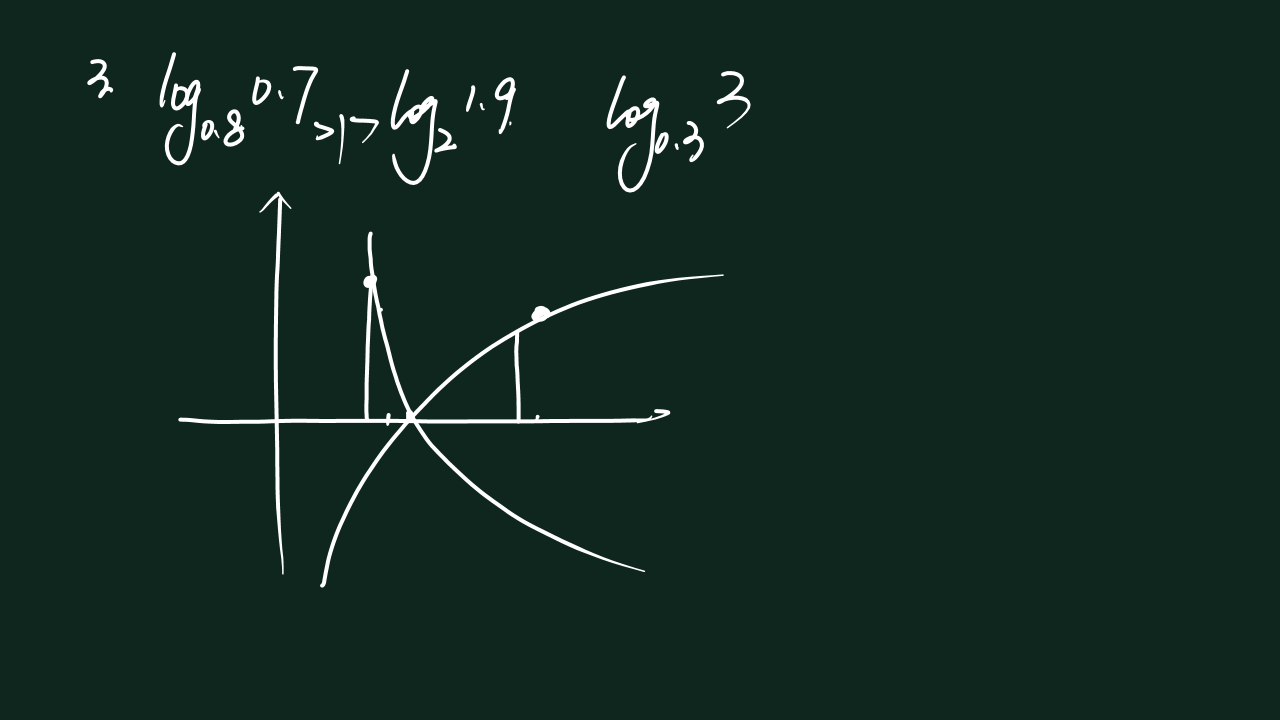 3. log₀.₈ 0.7 > 1 > log₂ 1.9 log₀.₃ 3